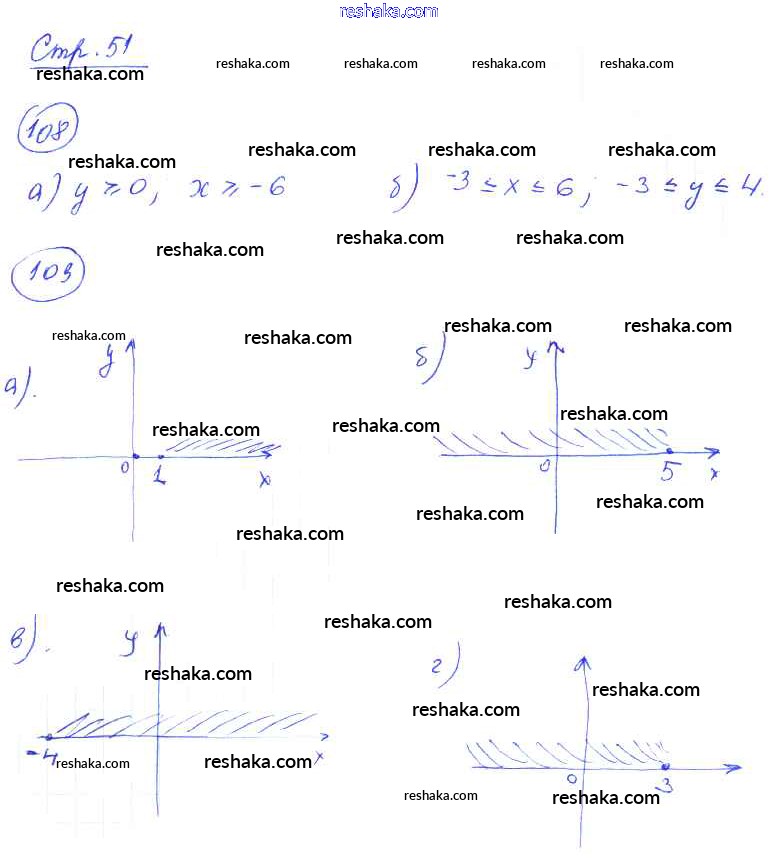 reshaka.com
Стр. 51
reshaka.com reshaka.com reshaka.com reshaka.com reshaka.com
108
reshaka.com reshaka.com reshaka.com reshaka.com
а) y ≥ 0; x ≥ -6 б) -3 ≤ x ≤ 6; -3 ≤ y ≤ 4.
reshaka.com reshaka.com reshaka.com
109
reshaka.com reshaka.com reshaka.com reshaka.com
а). y б) y
reshaka.com reshaka.com reshaka.com
0 1 x 0 5 x
reshaka.com reshaka.com reshaka.com
reshaka.com reshaka.com reshaka.com
в). y г)
reshaka.com reshaka.com reshaka.com
-4 x 0 3
reshaka.com reshaka.com reshaka.com reshaka.com